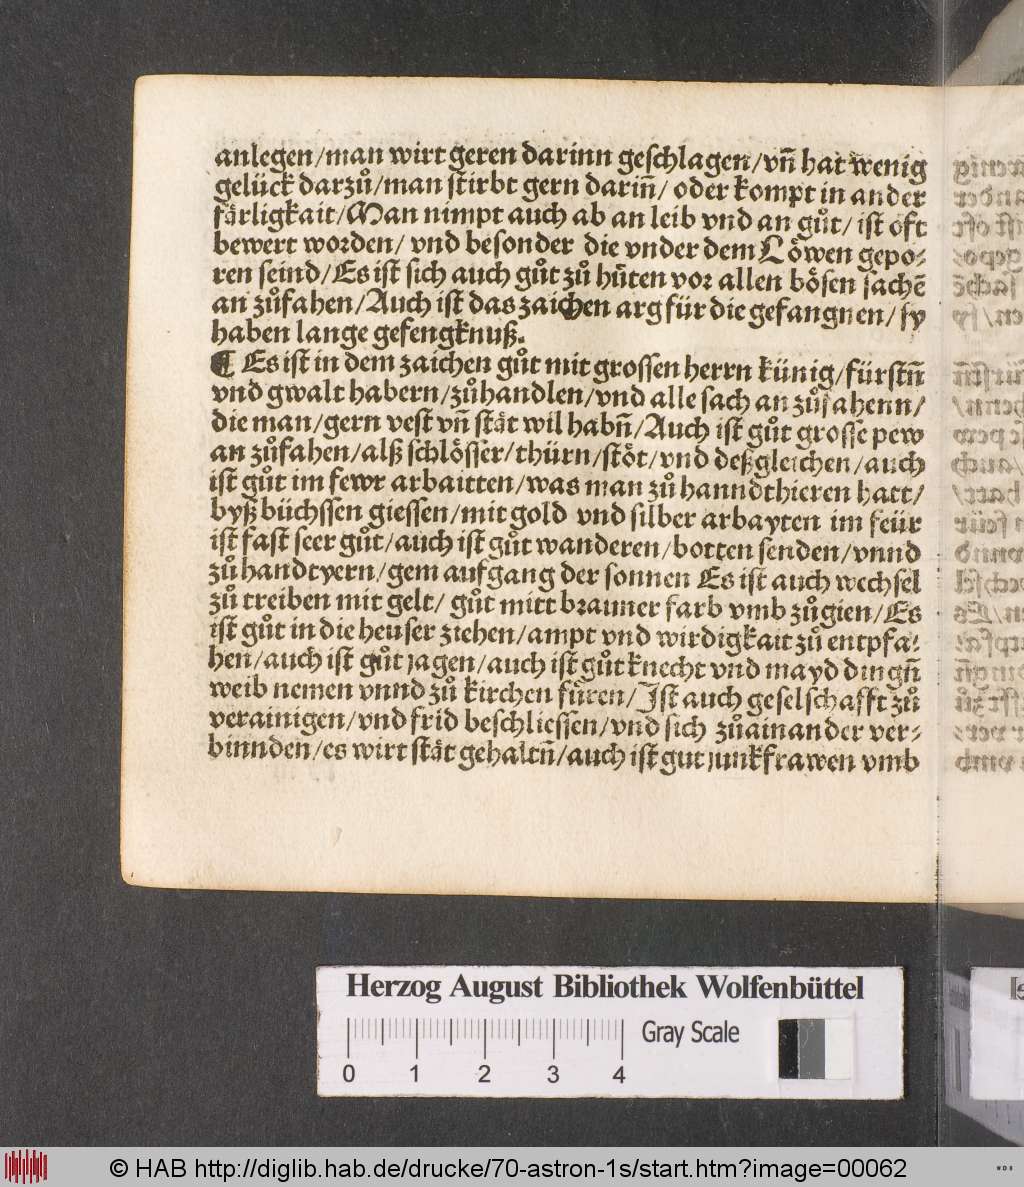 anlegen/man wirt geren darinn geſchlagen/vn̄ hat wenig
gelück darzů/man ſtirbt gern darin̄/ oder kompt in ander
fårligkait/Man nimpt auch ab an leib vnd an gůt/ iſt oft
bewert worden/ vnd beſonder die vnder dem Lőwen gepo⸗
ren ſeind/Es iſt ſich auch gůt zů hůten vor allen bőſen ſachē
an zůfahen/Auch iſt das zaichen arg für die gefangnen/ſy
haben lange gefengknuß.
¶ Es iſt in dem zaichen gůt mit groſſen herrn künig/fürſtn̄
vnd gwalt habern/zůhandlen/vnd alle ſach an zůfahenn/
die man/gern veſt vn̄ ſtåt wil habn̄/Auch iſt gůt groſſe pew
an zůfahen/alß ſchlőſſer/thürn/ſtőt/vnd deßgleichen/auch
iſt gůt im fewr arbaitten/was man zů hanndthieren hatt/
byß büchſſen gieſſen/mit gold vnd ſilber arbayten im feür
iſt faſt ſeer gůt/auch iſt gůt wanderen/botten ſenden/vnnd
zů handtyern/gem aufgang der ſonnen Es iſt auch wechſel
zů treiben mit gelt/ gůt mitt brauner farb vmb zůgien/Es
iſt gůt in die heuſer ziehen/ampt vnd wirdigkait zů entpfa⸗
hen/auch iſt gůt jagen/auch iſt gůt knecht vnd mayd dingn̄
weib nemen vnnd zů kirchen fůren/Iſt auch geſelſchafft zů
verainigen/vnd frid beſchlieſſen/vnd ſich zůainander ver⸗
binnden/es wirt ſtåt gehaltn̄/auch iſt gut junkfrawen vmb
Herzog August Bibliothek Wolfenbüttel
Gray Scale
0 1 2 3 4
© HAB http://diglib.hab.de/drucke/70-astron-1s/start.htm?image=00062